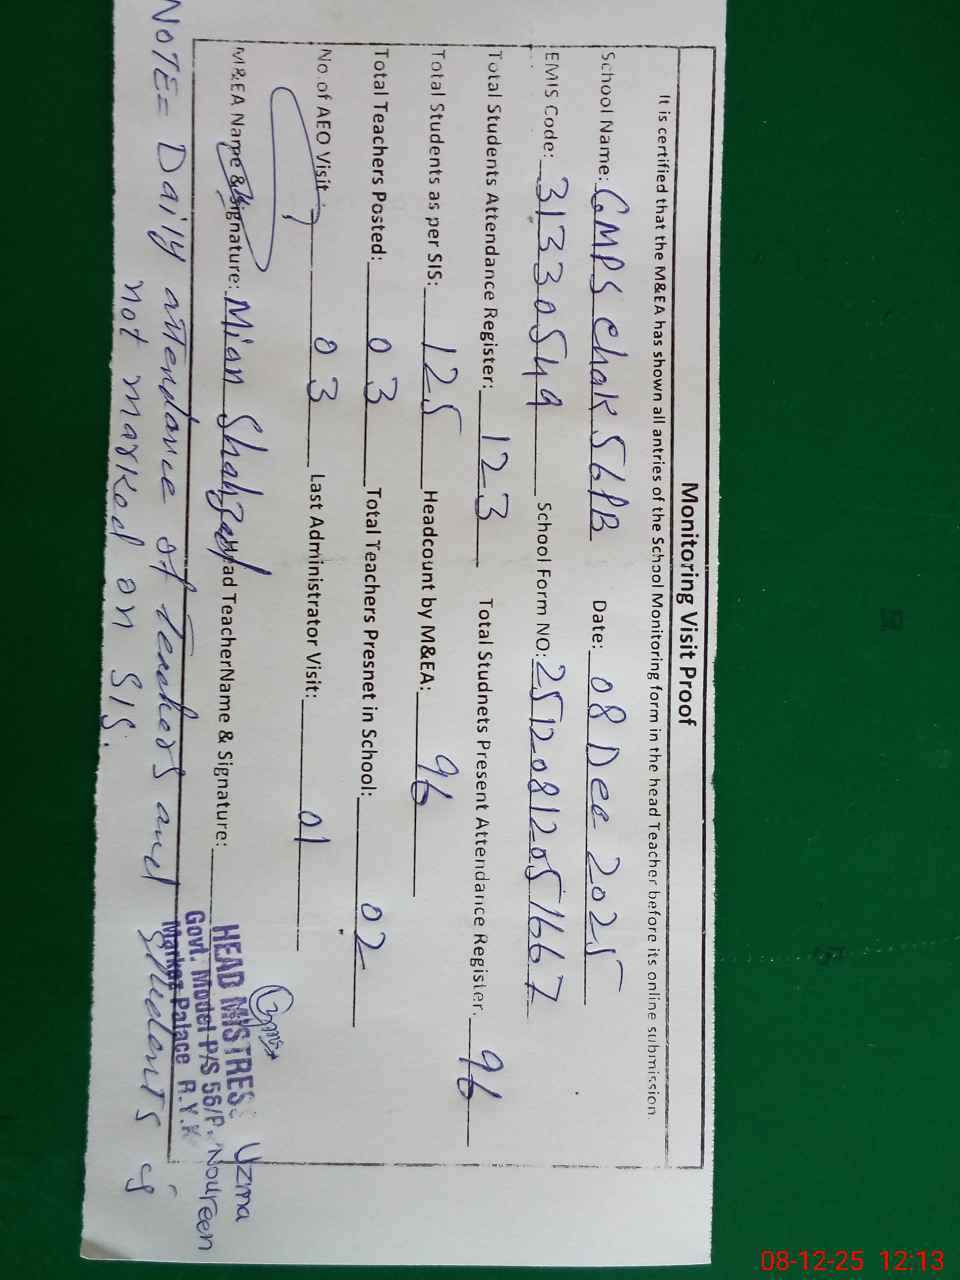 Monitoring Visit Proof
It is certified that the M&EA has shown all antries of the School Monitoring form in the head Teacher before its online submission.
School Name: GMPS Chak 56PB Date: 08 Dec 2025
EMIS Code: 31330549 School Form NO: 25120812051667
Total Students Attendance Register: 123 Total Studnets Present Attendance Register. 96
Total Students as per SIS: 125 Headcount by M&EA: 96
Total Teachers Posted: 03 Total Teachers Presnet in School: 02
No.of AEO Visit: 03 Last Administrator Visit: 01
M&EA Name & Signature: Mian Shahzad Head TeacherName & Signature:
HEAD MISTRESS Uzma
Govt. Model P/S 56/P. Noureen
Markaz Palace R.Y.K
NOTE= Daily attendance of teachers and students is
not marked on SIS.
08-12-25 12:13